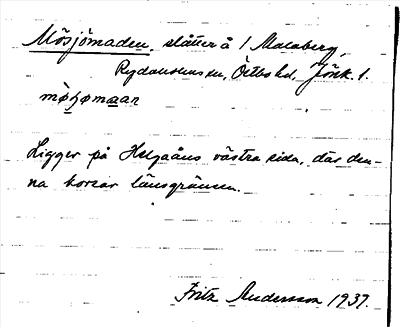 Mösjömaden, slåtter å 1 Malaberg,
Rydaholms sn, Östbo hd, Jönk. l.
mø̀ʂømaan
Ligger på Helgaåns västra sida, där den-
na korsar länsgränsen.
Fritz Andersson 1937.